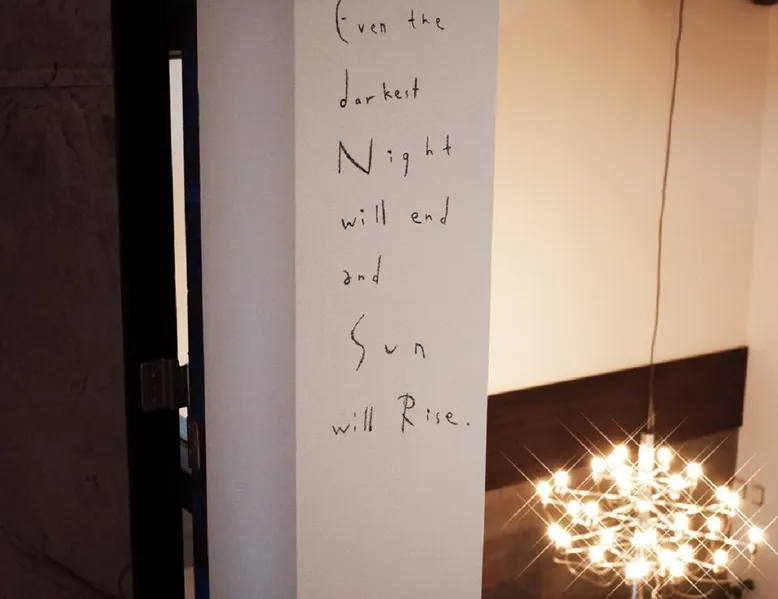 Even the
darkest
Night
will end
and
Sun
will Rise.